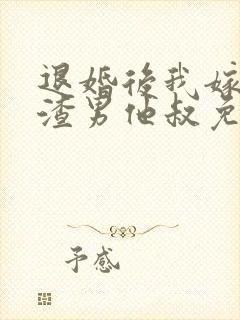 退婚後我嫁
渣男他叔免
予感